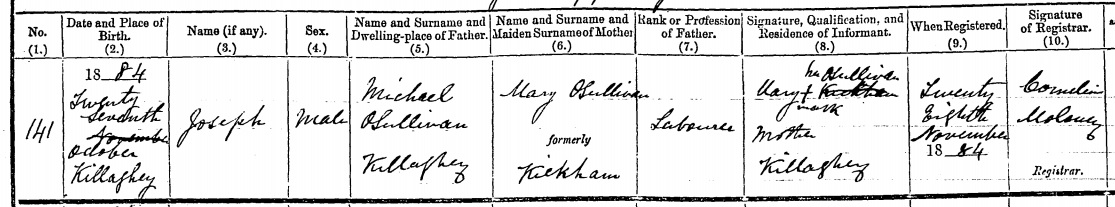 No. (1.)
Date and Place of Birth. (2.)
Name (if any). (3.)
Sex. (4.)
Name and Surname and Dwelling-place of Father. (5.)
Name and Surname and Maiden Surname of Mother (6.)
Rank or Profession of Father. (7.)
Signature, Qualification, and Residence of Informant. (8.)
When Registered. (9.)
Signature of Registrar. (10.)
141
1884
Twenty
Seventh
November
October
Killaghey
Joseph
Male
Michael
OSullivan
Killaghey
Mary OSullivan
formerly
Kickham
Labourer
her OSullivan
Mary + Kickham
mark
Mother
Killaghey
Twenty
Eighth
November
1884
Cornelius
Moloney
Registrar.